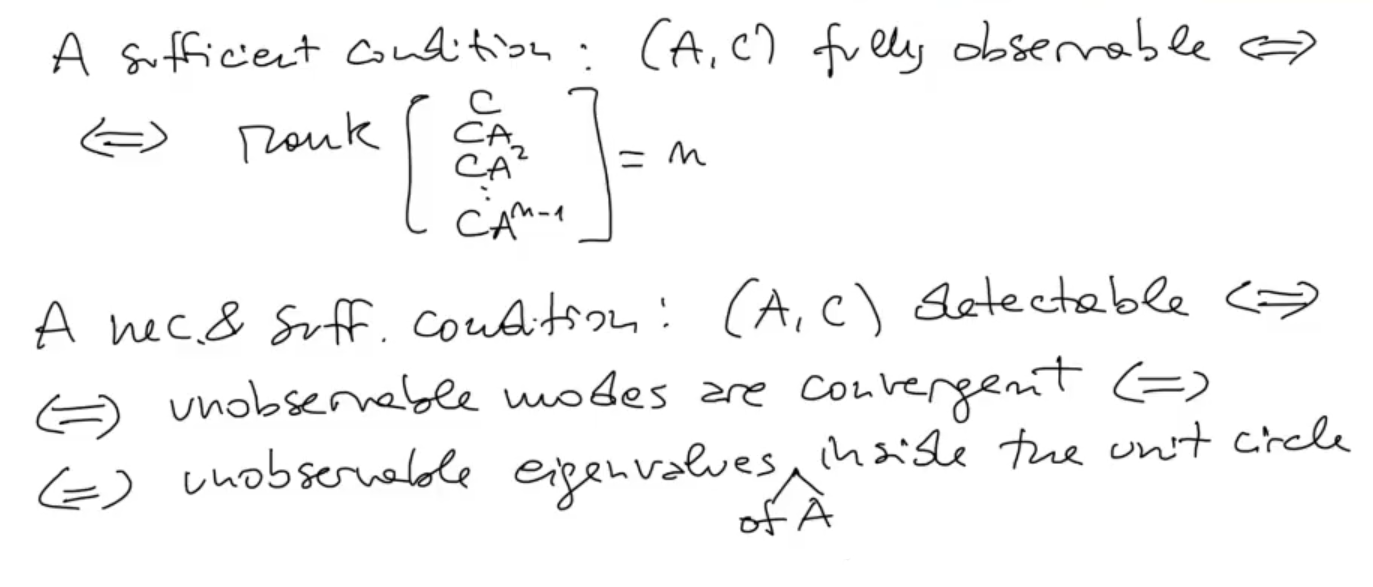 A sufficient condition : (A,C) fully observable ⟺
⟺ rank [ C
CA
CA²
⋮
CAⁿ⁻¹ ] = n
A nec. & suff. condition : (A,C) detectable ⟺
⟺ unobservable modes are convergent ⟺
⟺ unobservable eigenvalues of A inside the unit circle